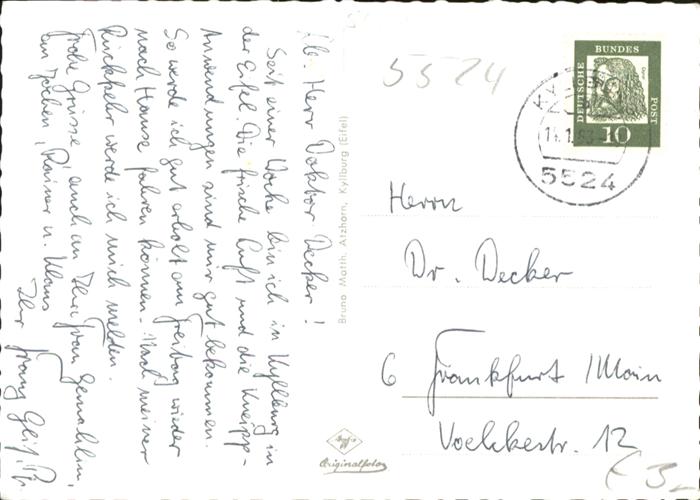 Lb. Herr Doktor Decker!
Seit einer Woche bin ich in Kyllburg in
der Eifel. Die frische Luft und die Kneipp-
Anwendungen sind mir gut bekommen.
So werde ich gut erholt am Freitag wieder
nach Hause fahren können. Nach meiner
Rückkehr werde ich mich melden.
Frohe Grüsse auch an Ihre Frau Gemahlin,
an Jochen, Rainer u. Klaus
Ihr Franz
Bruno Matth. Atzhorn, Kyllburg (Eifel)
5524
DEUTSCHE
BUNDES
POST
10
5524
Herrn
Dr. Decker
6 Frankfurt /Main
Voelckestr. 12
Agfa
Originalfoto
€ 3,-